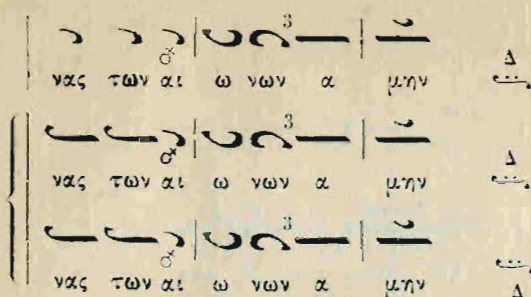 3
νας των αι ω νων α μην Δ
3
νας των αι ω νων α μην Δ
3
νας των αι ω νων α μην Δ